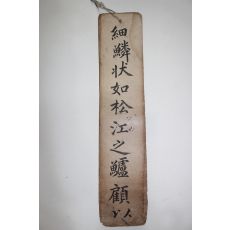 細鱗狀如松江之鱸顧